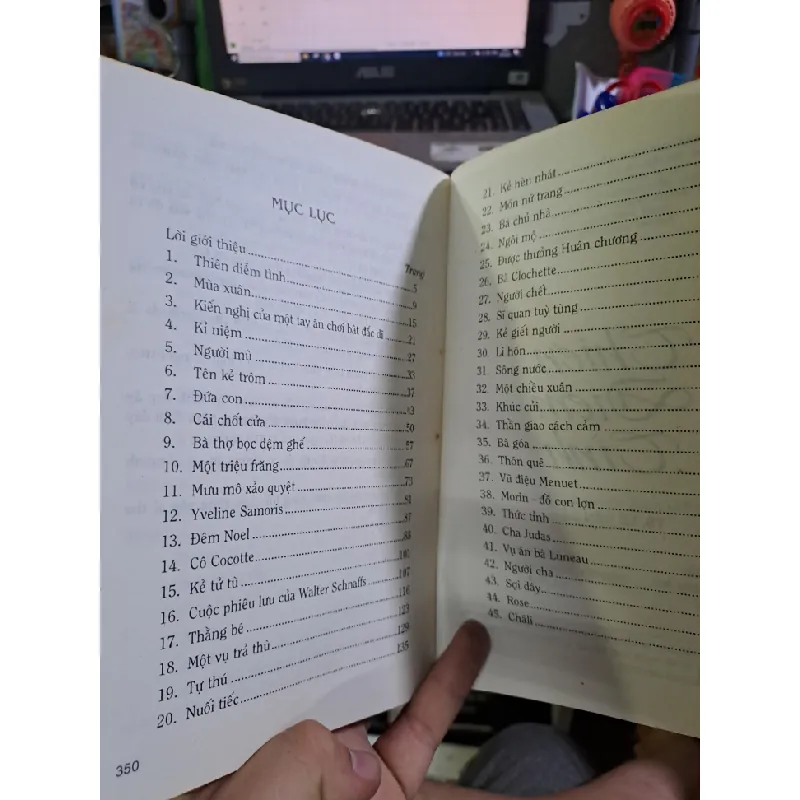 ASUS
MỤC LỤC
Trang
Lời giới thiệu 5
1. Thiên diễm tình 9
2. Mùa xuân 15
3. Kiến nghị của một tay ăn chơi bất đắc dĩ 21
4. Kỉ niệm 27
5. Người mù 33
6. Tên kẻ trộm 37
7. Đứa con 43
8. Cái chốt cửa 50
9. Bà thợ bọc đệm ghế 57
10. Một triệu frăng 67
11. Mưu mô xảo quyệt 73
12. Yveline Samoris 81
13. Đêm Noel
14. Cô Cocotte
15. Kẻ tử tù 101
16. Cuộc phiêu lưu của Walter Schnaffs 107
17. Thằng bé 116
18. Một vụ trả thù 123
19. Tự thú 129
20. Nuối tiếc 135
350
21. Kẻ hèn nhát
22. Món nữ trang
23. Bà chủ nhà
24. Ngôi mộ
25. Được thưởng Huân chương
26. Bà Clochette
27. Người chết
28. Sĩ quan tuỳ tùng
29. Kẻ giết người
30. Li hôn
31. Sông nước
32. Một chiều xuân
33. Khúc củi
34. Thần giao cách cảm
35. Bà góa
36. Thôn quê
37. Vũ điệu Menuet
38. Morin - đồ con lợn
39. Thức tỉnh
40. Cha Judas
41. Vụ án bà Luneau
42. Người cha
43. Sợi dây
44. Rose
45. Châli